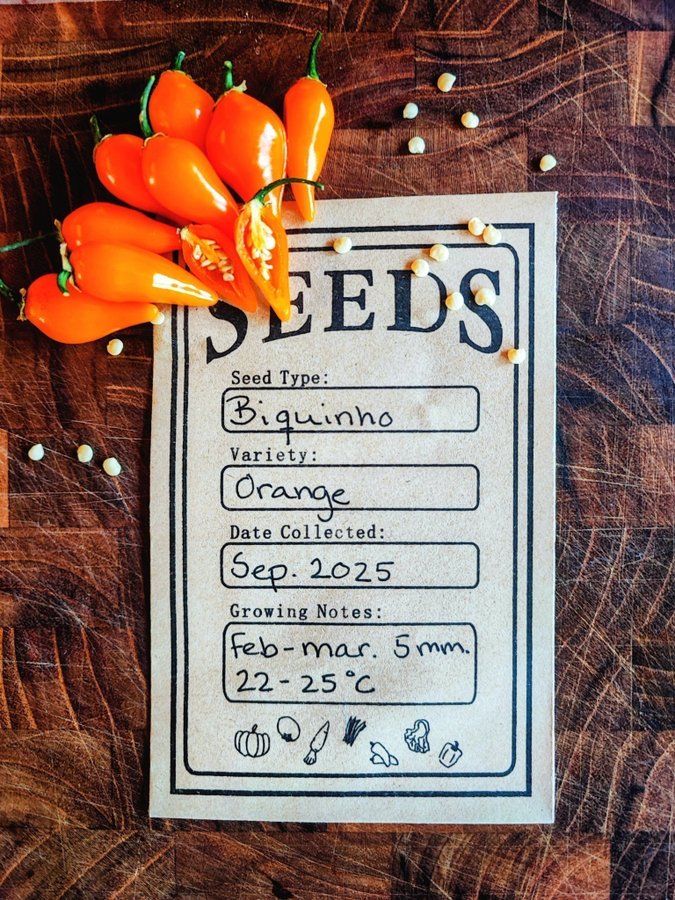 SEEDS
Seed Type:
Biquinho
Variety:
Orange
Date Collected:
Sep. 2025
Growing Notes:
Feb-mar. 5mm.
22-25°C